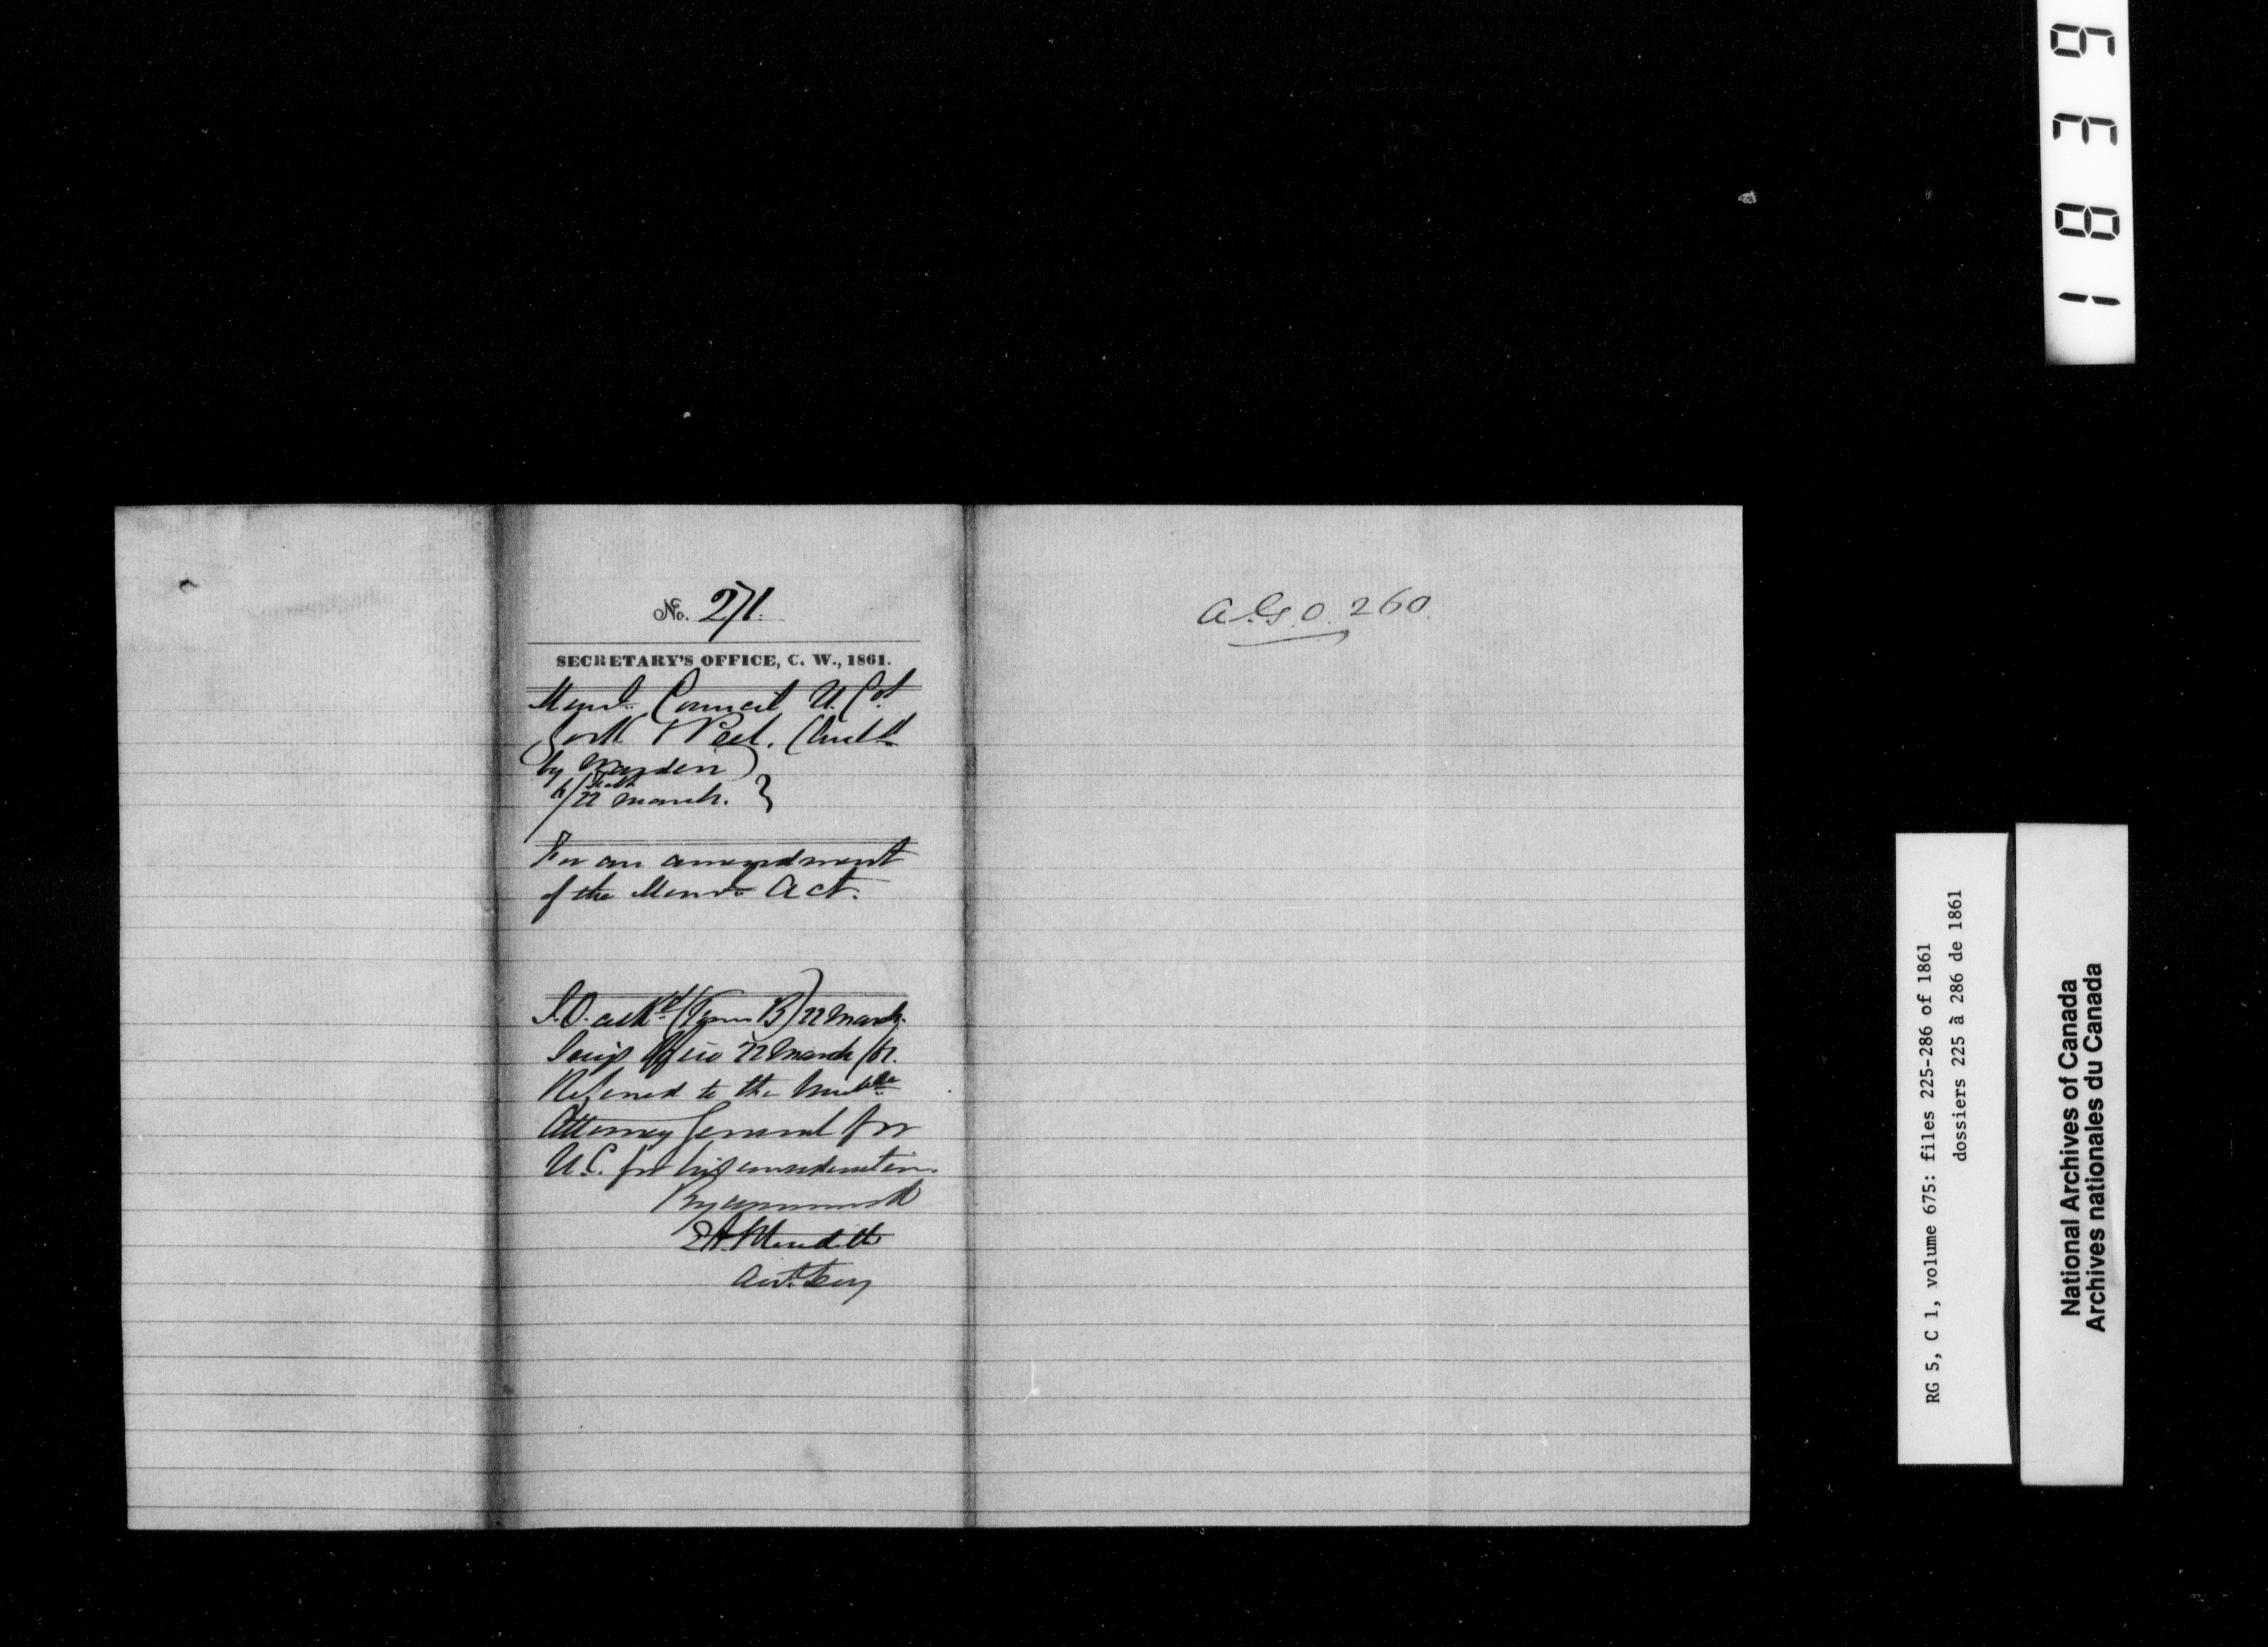 No. 271.
SECRETARY'S OFFICE, C. W., 1861.
Munl. Council, U. Cos.
York & Peel.
by Warden)
22 March. }
For an amendment
of the Munl. Act.
22 March
22 March /61.
Referred to the Honble
Attorney General for
U.C. for his consideration.
By command
E A Meredith
Asst. Secy
A.G.O. 260.
1839
RG 5, C 1, volume 675: files 225-286 of 1861
dossiers 225 à 286 de 1861
National Archives of Canada
Archives nationales du Canada